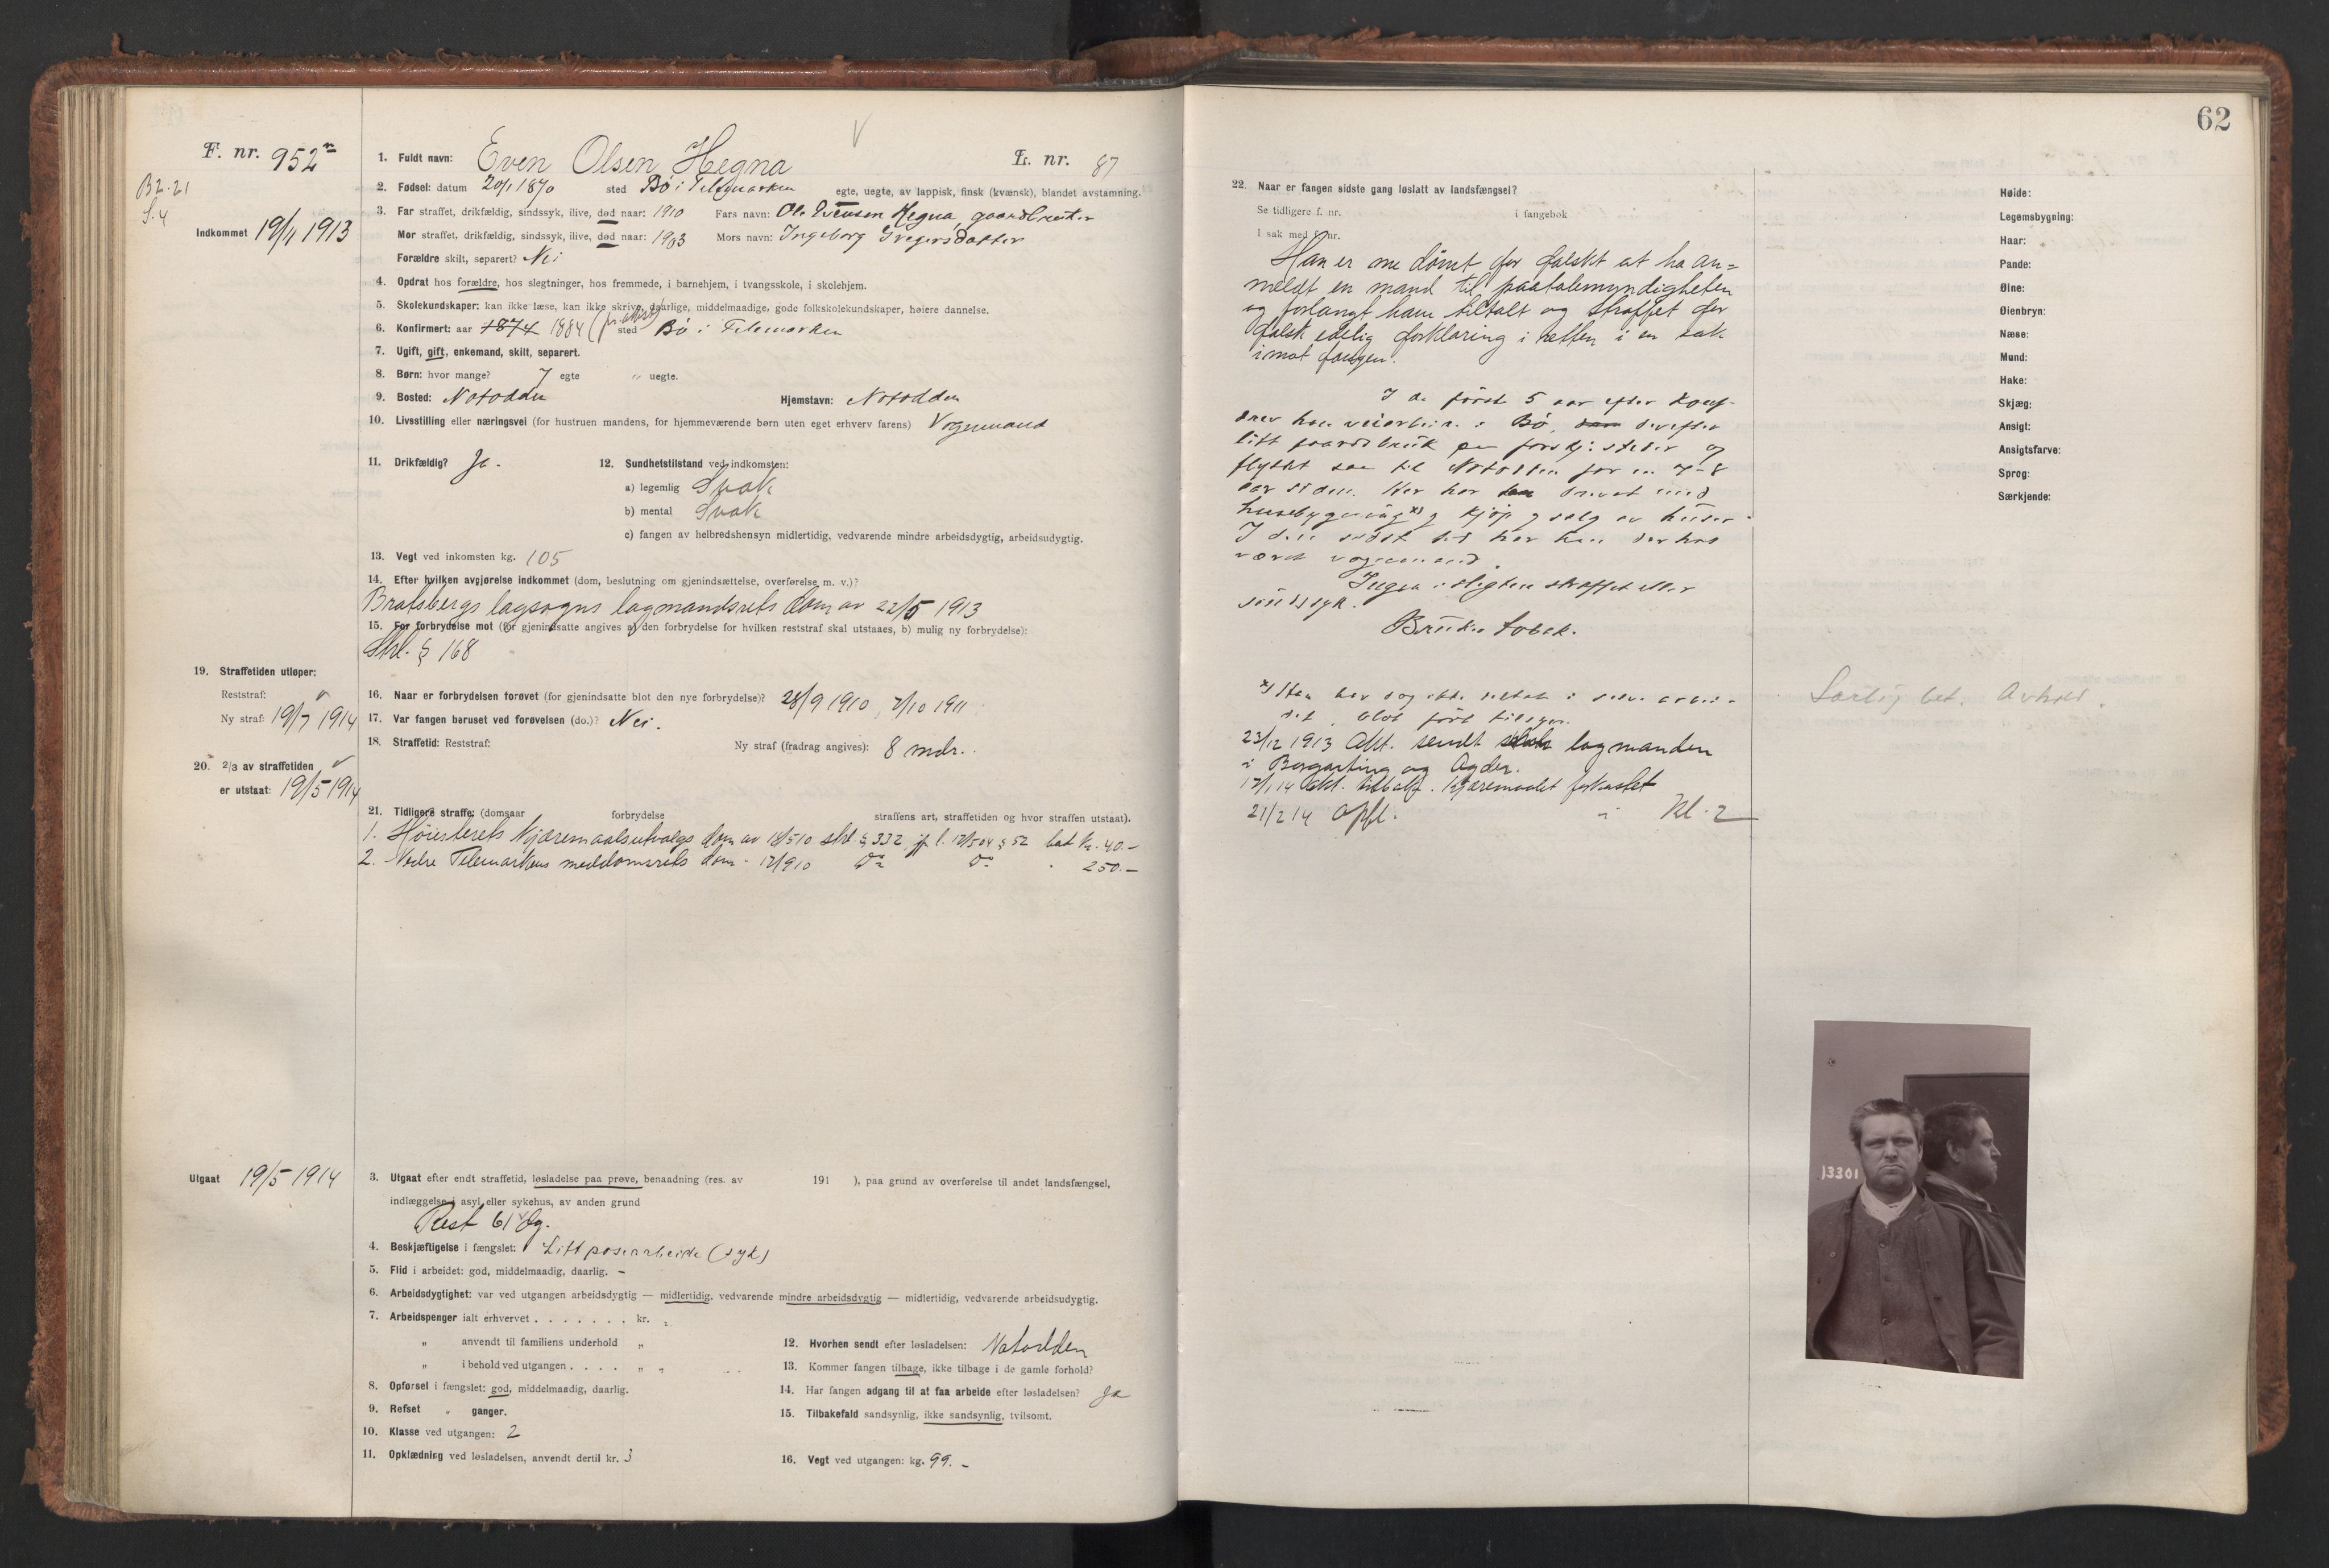 F. nr. 952
B2. 21
S. 4
Indkommet 19/11 1913
1. Fuldt navn: Even Olsen Hegna L. nr. 87
2. Fødsel: datum 20/1 1870 sted Bø i Telemarken egte, uegte, av lappisk, finsk (kvænsk), blandet avstamning.
3. Far straffet, drikfældig, sindssyk, ilive, død naar: 1910 Fars navn: Ole Evensen Hegna, gaardbruker
Mor straffet, drikfældig, sindssyk, ilive, død naar: 1903 Mors navn: Ingeborg Gregersdatter
Forældre skilt, separert? Nei
4. Opdrat hos forældre, hos slegtninger, hos fremmede, i barnehjem, i tvangsskole, i skolehjem.
5. Skolekundskaper: kan ikke læse, kan ikke skrive, daarlige, middelmaadige, gode folkskolekundskaper, høiere dannelse.
6. Konfirmert: aar 1874 1884 (pr. attest) sted Bø i Telemarken
7. Ugift, gift, enkemand, skilt, separert.
8. Børn: hvor mange? 7 egte " uegte.
9. Bosted: Notodden Hjemstavn: Notodden
10. Livsstilling eller næringsvei (for hustruen mandens, for hjemmeværende børn uten eget erhverv farens) Vognmand
11. Drikfældig? Ja. 12. Sundhetstilstand ved indkomsten:
a) legemlig Svak
b) mental Svak
c) fangen av helbredshensyn midlertidig, vedvarende mindre arbeidsdygtig, arbeidsudygtig.
13. Vegt ved inkomsten kg. 105
14. Efter hvilken avgjørelse indkommet (dom, beslutning om gjenindsættelse, overførelse m. v.)?
Bratsbergs lagsogns lagmandsrets dom av 22/5 1913
15. For forbrydelse mot (for gjenindsatte angives a) den forbrydelse for hvilken reststraf skal utstaaes, b) mulig ny forbrydelse):
Strl. § 168
19. Straffetiden utløper:
Reststraf:
Ny straf: 19/7 1914
16. Naar er forbrydelsen forøvet (for gjenindsatte blot den nye forbrydelse)? 28/9 1910, 7/10 1911
17. Var fangen beruset ved forøvelsen (do.)? Nei.
18. Straffetid: Reststraf: Ny straf (fradrag angives): 8 mdr.
20. 2/3 av straffetiden
er utstaat: 19/5 1914
21. Tidligere straffe: (domsaar forbrydelse straffens art, straffetiden og hvor straffen utstaat).
1. Høiesterets kjæremaalsutvalgs dom av 18/5 10 strl. § 332, jfr l. 12/5 04 § 52 bot kr. 40.-
2. Nedre Telemarkens meddomsrets dom - 17/9 10 do do 250.-
Utgaat 19/5 1914
3. Utgaat efter endt straffetid, løsladelse paa prøve, benaadning (res. av 191 ), paa grund av overførelse til andet landsfængsel,
indlæggelse i asyl eller sykehus, av anden grund
Rest 61 dg.
4. Beskjæftigelse i fængslet: Litt posearbeide (syk)
5. Flid i arbeidet: god, middelmaadig, daarlig. -
6. Arbeidsdygtighet: var ved utgangen arbeidsdygtig — midlertidig, vedvarende mindre arbeidsdygtig — midlertidig, vedvarende arbeidsudygtig.
7. Arbeidspenger ialt erhvervet . . . . . . . kr.
" anvendt til familiens underhold "
" i behold ved utgangen . . . . " "
8. Opførsel i fængslet: god, middelmaadig, daarlig.
9. Refset " ganger.
10. Klasse ved utgangen: 2
11. Opklædning ved løsladelsen, anvendt dertil kr. 3
12. Hvorhen sendt efter løsladelsen: Notodden
13. Kommer fangen tilbage, ikke tilbage i de gamle forhold?
14. Har fangen adgang til at faa arbeide efter løsladelsen? Ja
15. Tilbakefald sandsynlig, ikke sandsynlig, tvilsomt.
16. Vegt ved utgangen: kg. 99. -
62
22. Naar er fangen sidste gang løslatt av landsfængsel?
Se tidligere f. nr. i fangebok
I sak med f. nr.
Han er nu dømt for falskt at ha an=
meldt en mand til paatalemyndigheten
og forlangt ham tiltalt og straffet for
falsk edelig forklaring i retten i en sak
imot fangen.
I de først 5 aar efter konf.
drev han veiarbeide i Bø, derefter
litt gaardsbruk paa forskj. steder og
flyttet saa til Notodden for en 7-8
aar siden. Her har han drevet med
husebygning x) og kjøp og salg av huser.
I den sidste tid har han derhos
været vognmand.
Ingen i slegten straffet eller
sindssyk.
Bruker tobak.
x) Han har dog ikke deltat i selve arbei-
det, blot ført tilsyn.
23/12 1913 Akt. sendt lagmanden
i Borgarting og Agder.
17/1 14 Akt. tilbake. Kjæremaalet forkastet
21/2 14 Opfl. i Kl. 2
Høide:
Legemsbygning:
Haar:
Pande:
Øine:
Øienbryn:
Næse:
Mund:
Hake:
Skjæg:
Ansigt:
Ansigtsfarve:
Sprog:
Særkjende:
Særlig bet. Avhold.
13301